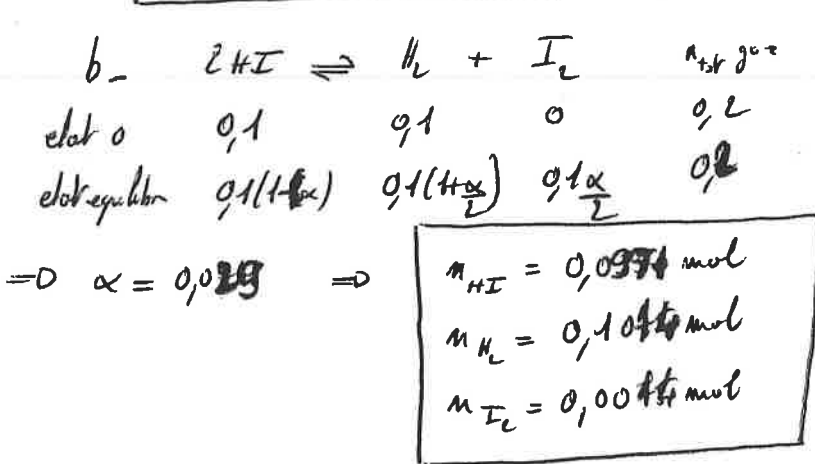 b_ 2HI ⇌ H₂ + I₂ n tot gaz
etat 0 0,1 0,1 0 0,2
etat equilibre 0,1(1-α) 0,1(1+α/2) 0,1 α/2 0,2
=> α = 0,029 =>
n HI = 0,0971 mol
n H₂ = 0,1014 mol
n I₂ = 0,0014 mol